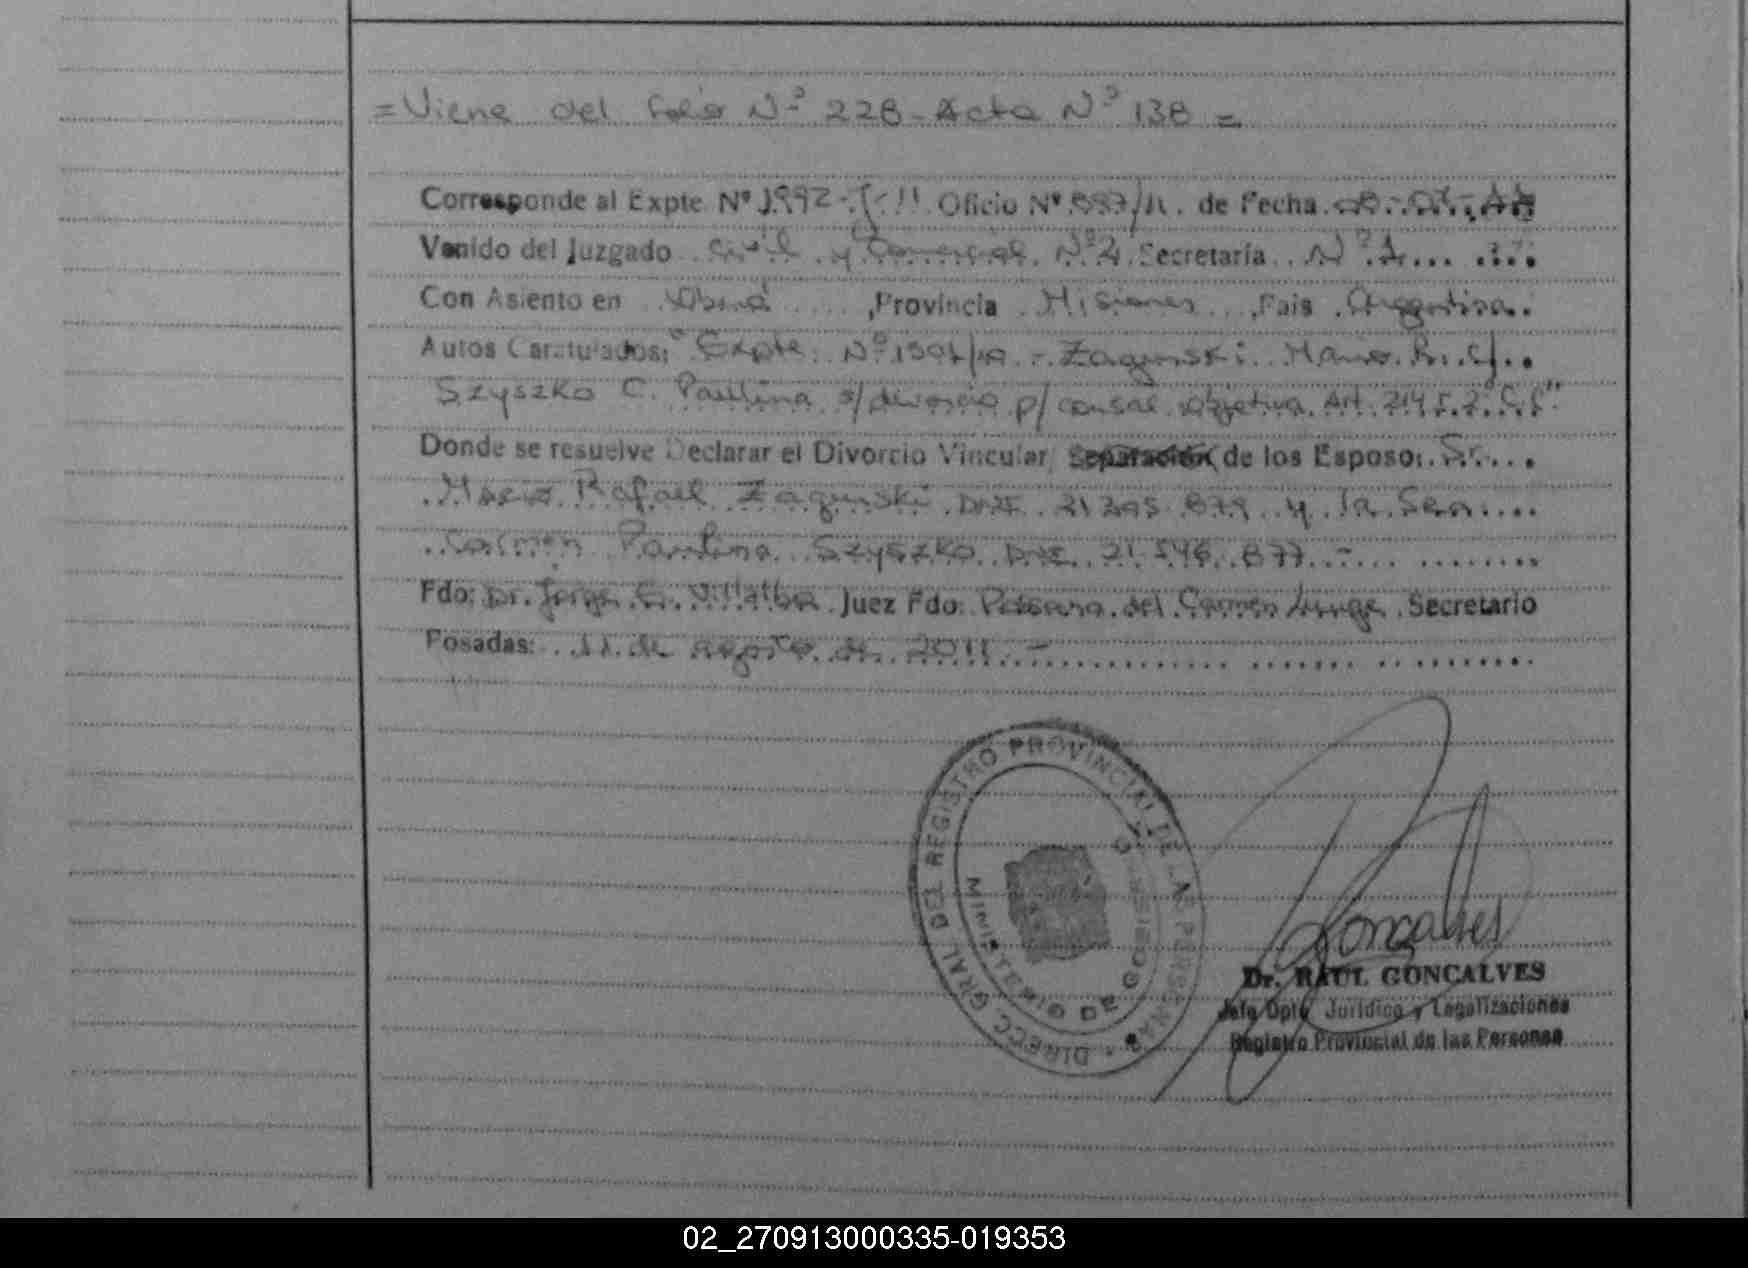 = Viene del folio Nº 228 - Acta Nº 138 =
Corresponde al Expte. Nº 1992- Oficio Nº 887/11. de Fecha
Venido del Juzgado Civil y Comercial Nº 2 Secretaría Nº 1
Con Asiento en Oberá , Provincia Misiones , País Argentina.
Autos Caratulados: " Expte. Nº Zagurski Mario R. c/
Szyszko C. Paulina s/ divorcio p/ causal objetiva Art. 214 C.C"
Donde se resuelve Declarar el Divorcio Vincular Separación de los Esposo: Sr.
Mario Rafael Zagurski DNI y la Sra.
Carmen Paulina Szyszko DNI 21.546.877.-
Fdo: Dr. Jorge E. Villalba Juez Fdo: del Carmen Secretario
Posadas: 11 de agosto de 2011 -
DIRECC. GRAL. DEL REGISTRO PROVINCIAL DE LAS PERSONAS
MINISTERIO DE GOBIERNO
Goncalves
Dr. RAUL GONCALVES
Jefe Dpto Jurídico y Legalizaciones
Registro Provincial de las Personas
02_270913000335-019353